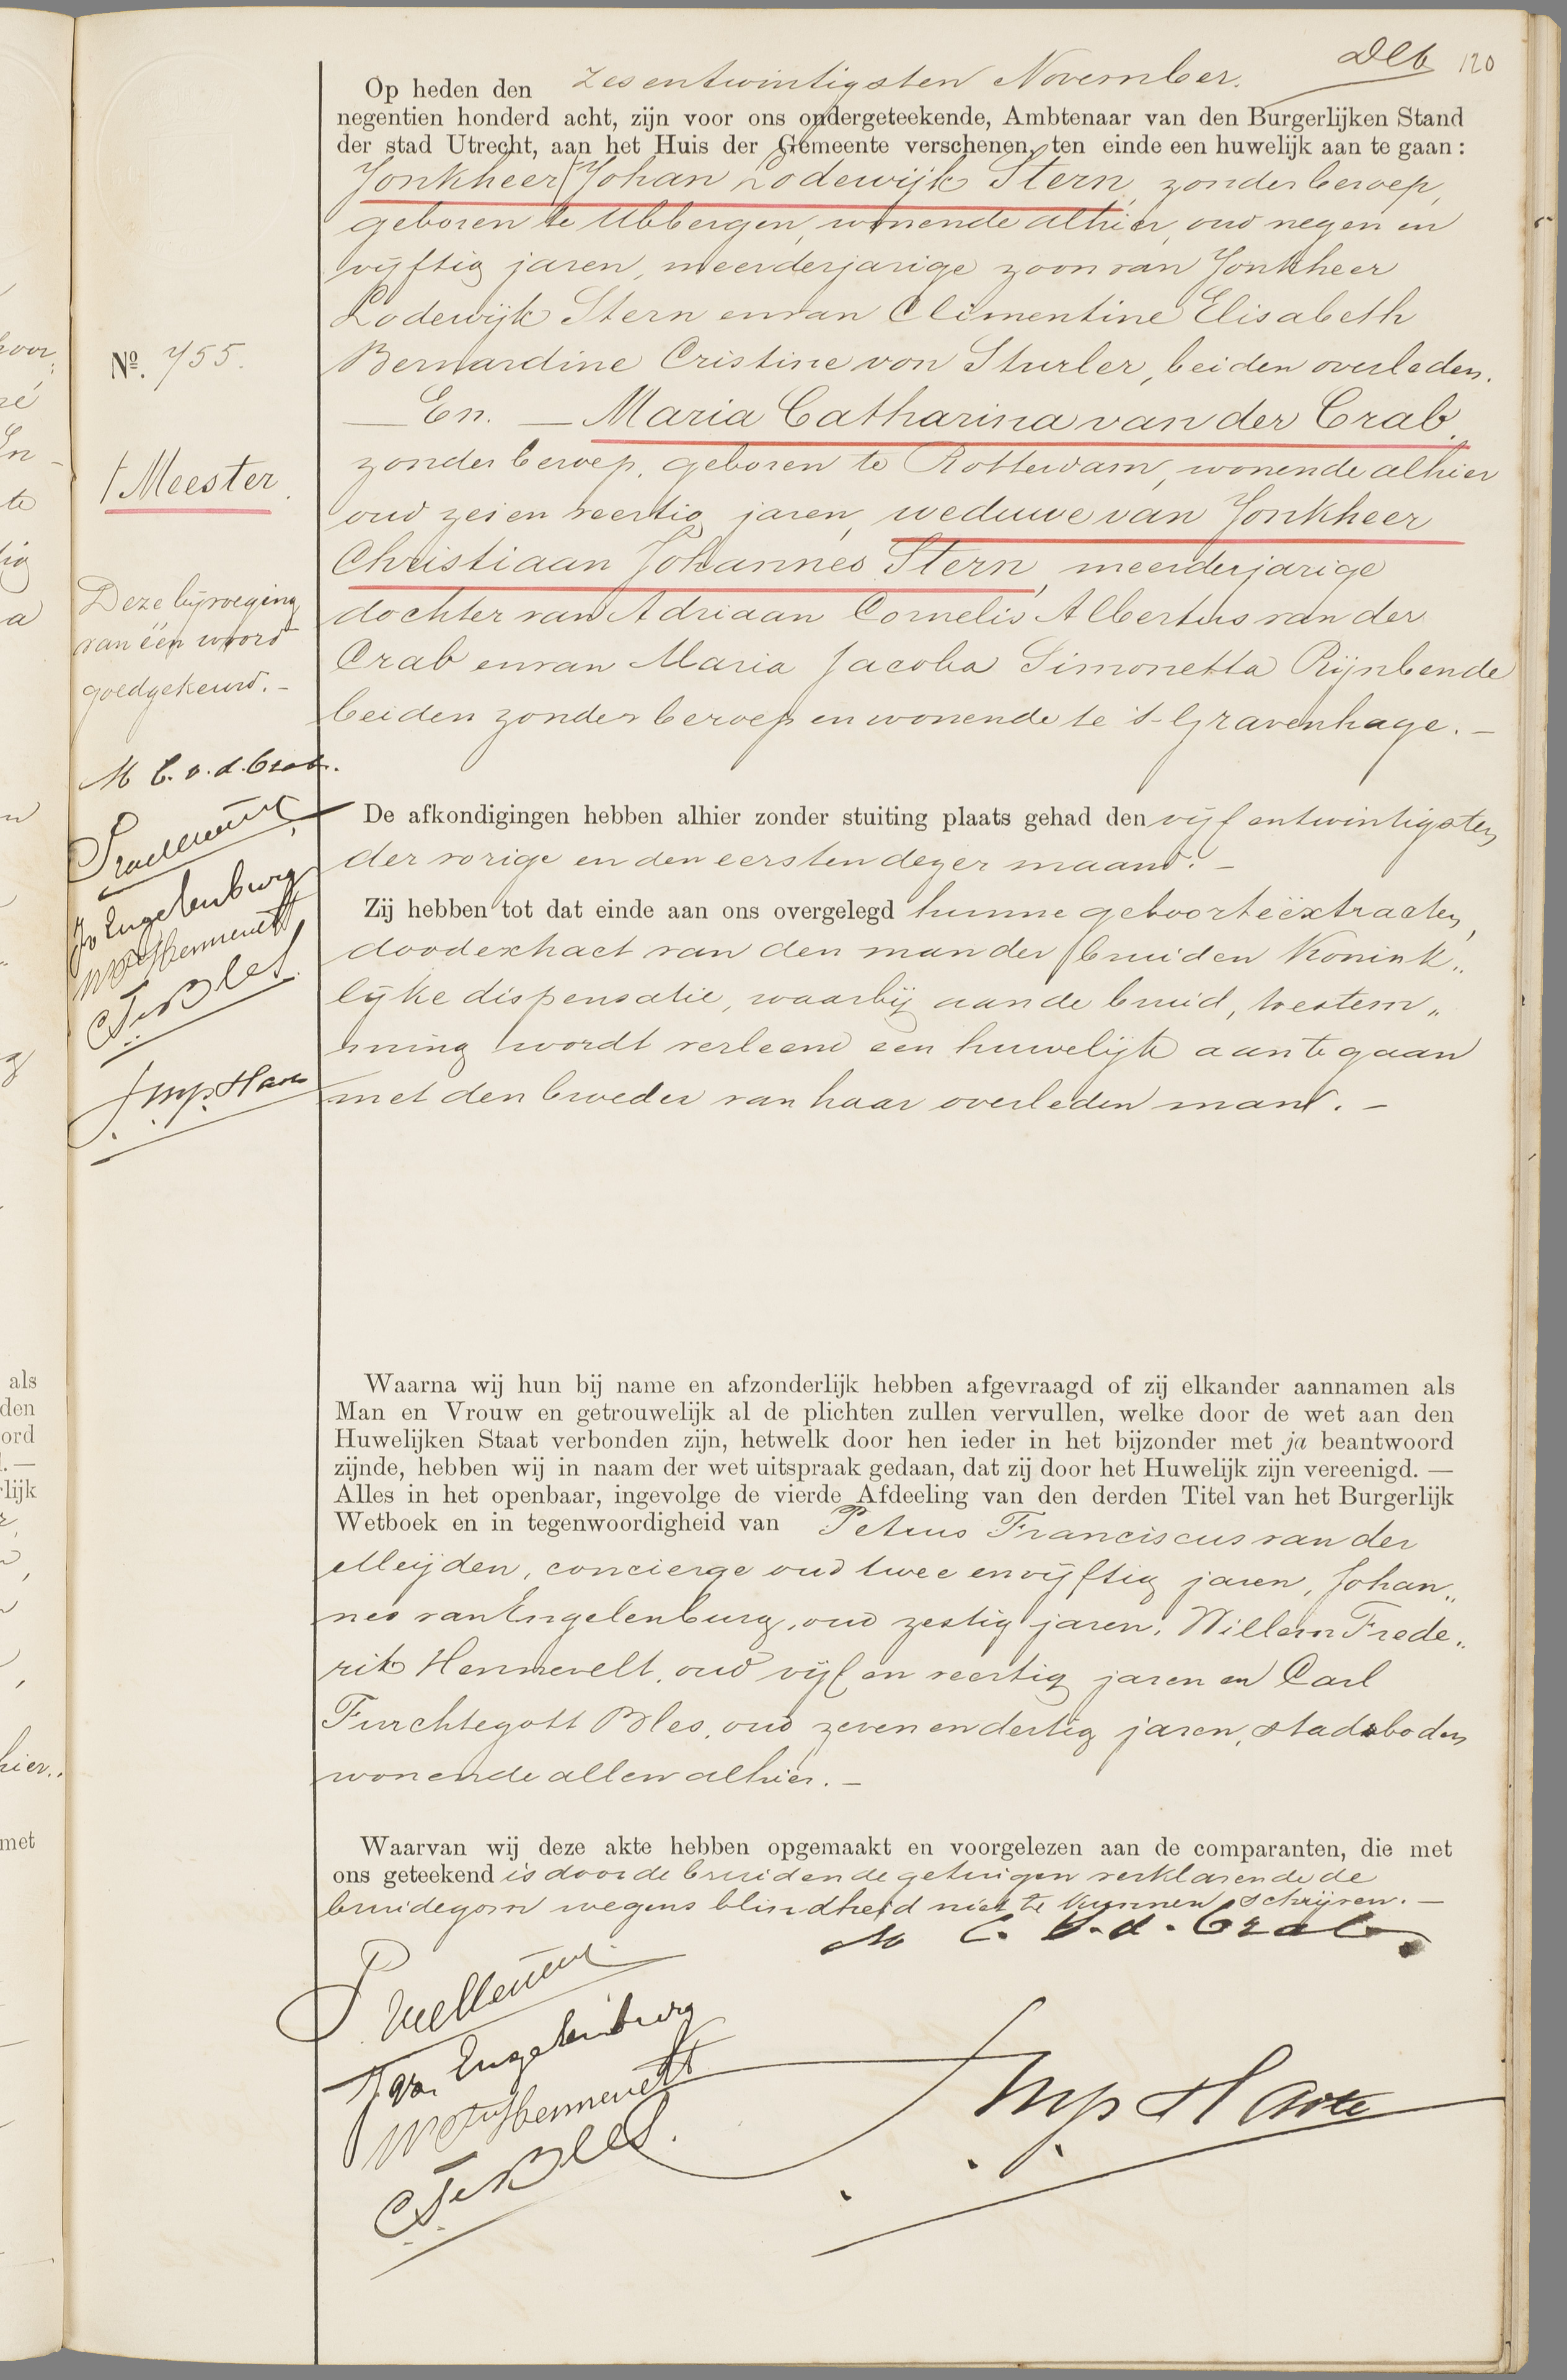 Dlb 120
Op heden den zesentwintigsten November.
negentien honderd acht, zijn voor ons ondergeteekende, Ambtenaar van den Burgerlijken Stand
der stad Utrecht, aan het Huis der Gemeente verschenen, ten einde een huwelijk aan te gaan:
Jonkheer Johan Lodewijk Stern, zonder beroep,
geboren te Ubbergen, wonende alhier, oud negen en
vijftig jaren, meerderjarige zoon van Jonkheer
Lodewijk Stern en van Clementine Elisabeth
Bernardine Cristine von Sturler, beiden overleden.
— En. — Maria Catharina van der Crab,
zonder beroep, geboren te Rotterdam, wonende alhier
oud zes en veertig jaren, weduwe van Jonkheer
Christiaan Johannes Stern, meerderjarige
dochter van Adriaan Cornelis Albertus van der
Crab en van Maria Jacoba Simonetta Rijnbende
beiden zonder beroep en wonende te 's-Gravenhage. —
No. 755.
† Meester
Deze bijvoeging
van één woord
goedgekeurd. —
M C. v. d. Crab.
Jv Engelenburg
WF Hennevelt
CF Bles
JMP Harte
De afkondigingen hebben alhier zonder stuiting plaats gehad den vijfentwintigsten
der vorige en den eersten dezer maand. —
Zij hebben tot dat einde aan ons overgelegd hunne geboorteëxtracten,
doodextract van den man der bruid en Konink„
lijke dispensatie, waarbij aan de bruid, toestem„
ming wordt verleend een huwelijk aan te gaan
met den broeder van haar overleden man. —
Waarna wij hun bij name en afzonderlijk hebben afgevraagd of zij elkander aannamen als
Man en Vrouw en getrouwelijk al de plichten zullen vervullen, welke door de wet aan den
Huwelijken Staat verbonden zijn, hetwelk door hen ieder in het bijzonder met ja beantwoord
zijnde, hebben wij in naam der wet uitspraak gedaan, dat zij door het Huwelijk zijn vereenigd. —
Alles in het openbaar, ingevolge de vierde Afdeeling van den derden Titel van het Burgerlijk
Wetboek en in tegenwoordigheid van Petrus Franciscus van der
Meijden, concierge oud twee en vijftig jaren, Johan„
nes van Engelenburg, oud zestig jaren, Willem Frede„
rik Hennevelt, oud vijf en veertig jaren en Carl
Furchtegott Bles, oud zeven en dertig jaren, stadsboden
wonende allen alhier. —
Waarvan wij deze akte hebben opgemaakt en voorgelezen aan de comparanten, die met
ons geteekend is door de bruid en de getuigen verklarende de
bruidegom wegens blindheid niet te kunnen schrijven. —
M C. v. d. Crab.
J van Engelenburg
WF Hennevelt
CF Bles
JMP Harte
als
den
ord
lijk
hier.
met